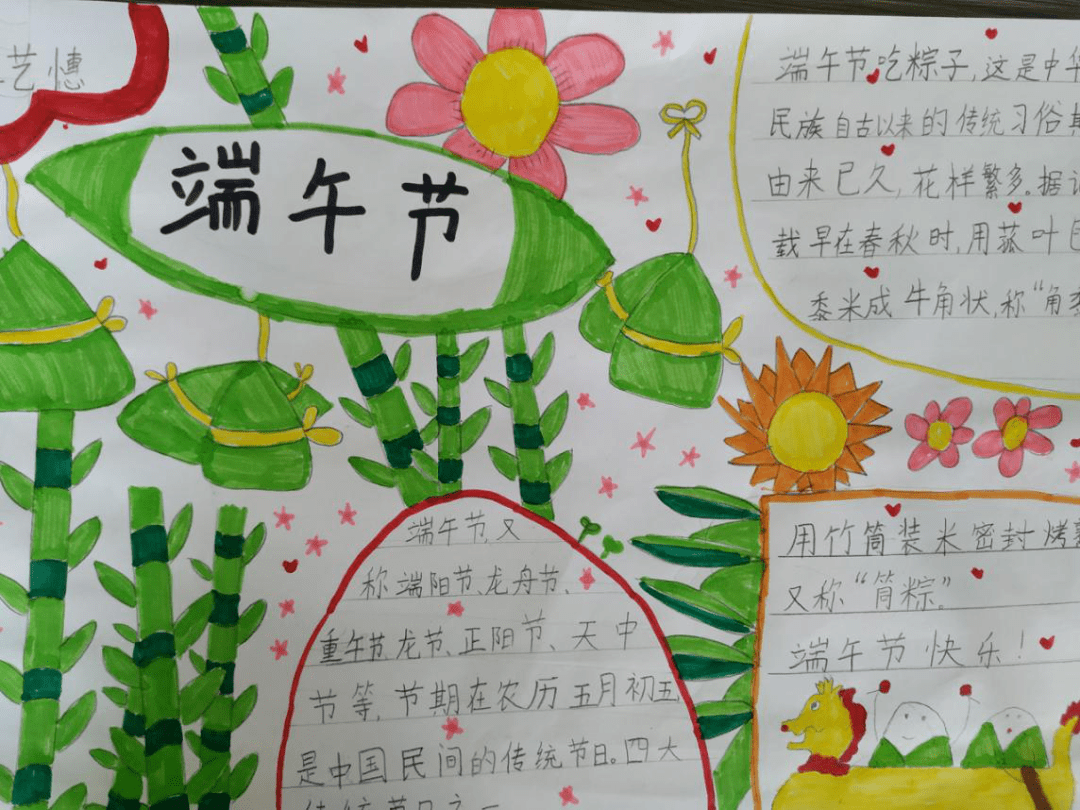 艺憓
端午节
端午节吃粽子,这是中华
民族自古以来的传统习俗其
由来已久,花样繁多。据
载早在春秋时,用菰叶
黍米成牛角状,称“角
端午节又
称端阳节、龙舟节、
重午节、龙节、正阳节、天中
节等,节期在农历五月初五
是中国民间的传统节日。四大
传统节日之一
用竹筒装米密封烤
又称“筒粽”。
端午节快乐!